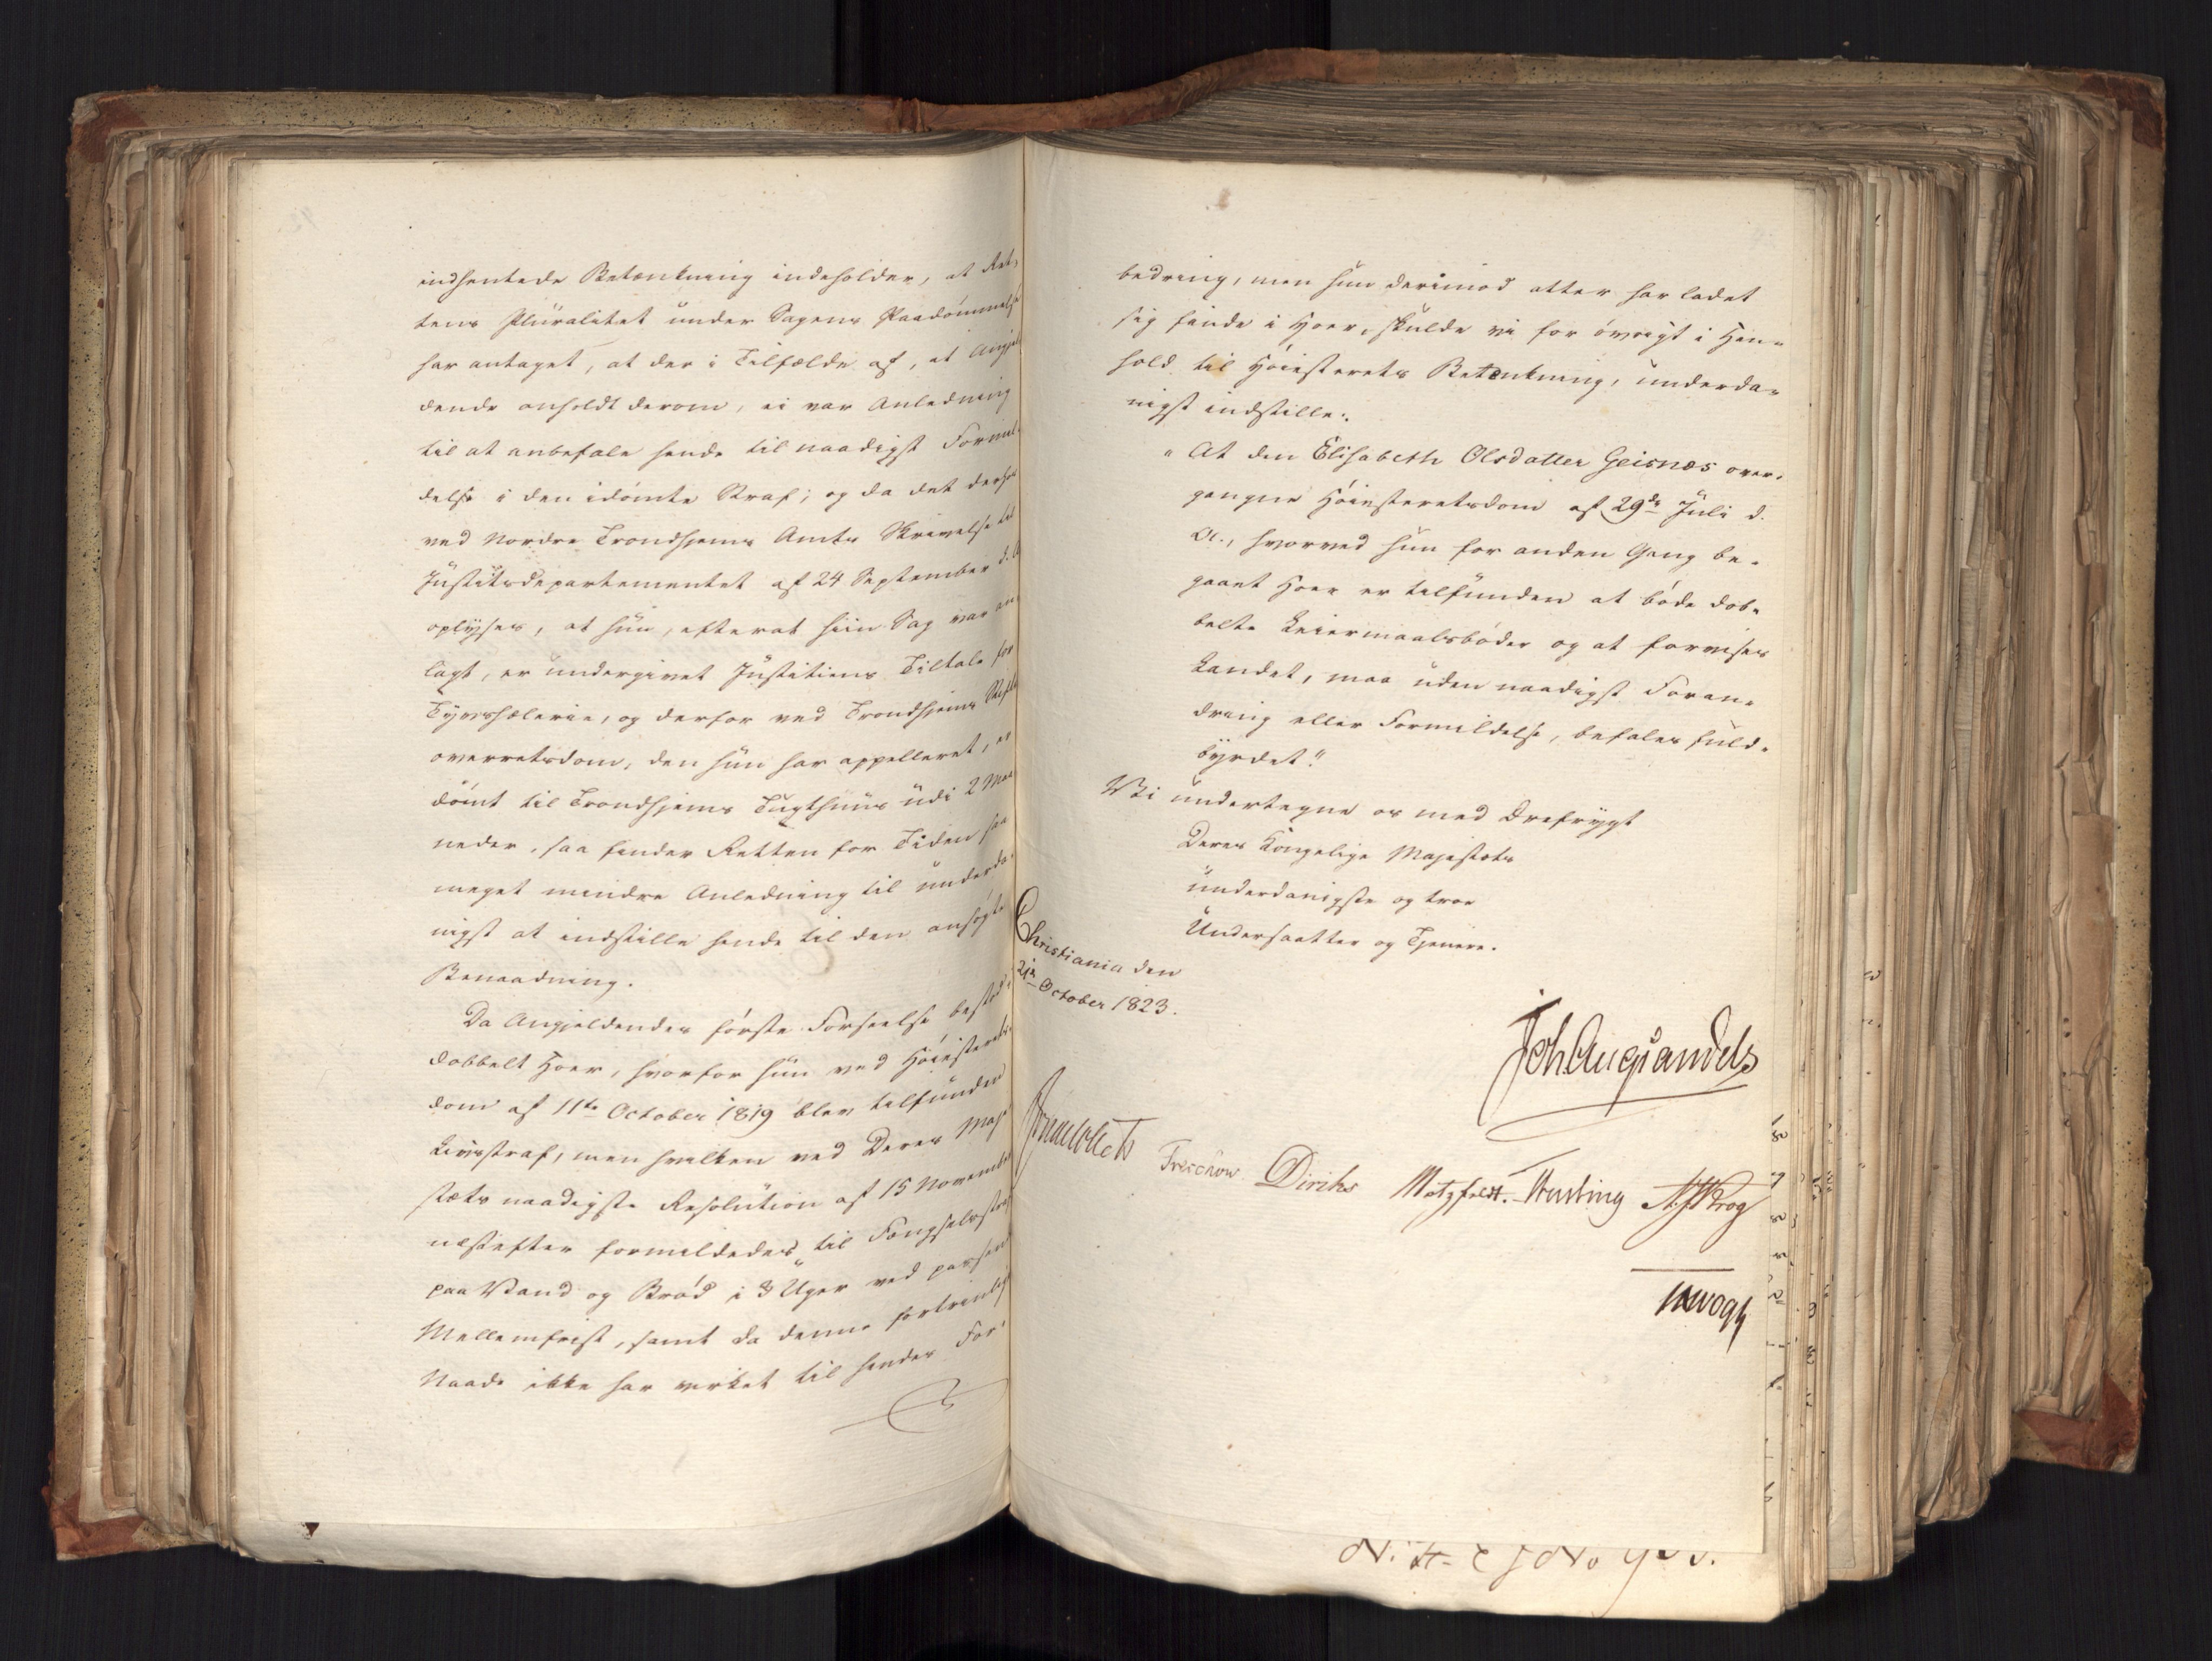 indhentede Betænkning indeholder, at Ret-
tens Pluralitet under Sagens Paadømmelse
har antaget, at der i Tilfælde af, at Angjel-
dende anholdt derom, ei var Anledning
til at anbefale hende til naadigst Formil-
delse i den idømte Straf; og da det derhos
ved Nordre Trondhjems Amts Skrivelse til
Justitsdepartementet af 24 September d. A.
oplyses, at hun, efterat hiin Sag var an-
lagt, er undergivet Justitiens Tiltale for
Tyvshælerie, og derfor ved Trondhjems Stifts
overretsdom, den hun har appelleret, er
dømt til Trondhjems Tugthuus udi 2 Maa
neder, saa finder Retten for Tiden saa
meget mindre Anledning til underda-
nigst at indstille hende til den ansøgte
Benaadning.
Da Angjeldendes første Forseelse bestod i
dobbelt Hoer, hvorfor hun ved Høiesterets-
dom af 11te October 1819 blev tilfunden
Livsstraf, men hvilken ved Deres Maje
stæts naadigste Resolution af 15 November
næstefter formildedes til Fængselsstraf
paa Vand og Brød i 3 Uger ved passende
Mellemfrist, samt da denne fortrinlige
Naade ikke har virket til hendes For-
bedring, men hun derimod atter har ladet
sig finde i Hoer, skulde vi for øvrigt i Hen-
hold til Høiesterets Betænkning, underda-
nigst indstille:
"At den Elisabeth Olsdatter Geisnæs over-
gangne Høiesteretsdom af 29de Juli d.
A., hvorved hun for anden Gang be-
gaaet Hoer er tilfunden at bøde dob-
belte Leiermaalsbøder og at forvises
Landet, maa uden naadigst Foran-
dring eller Formildelse, befales fuld-
byrdet."
Vi undertegne os med Ærefrygt
Deres Kongelige Majestæts
underdanigste og troe
Undersaatter og Tjenere.
Christiania den
21de October 1823.
Joh Aug Sandels
Treschow Diriks Motzfeldt. Krog
Vogt